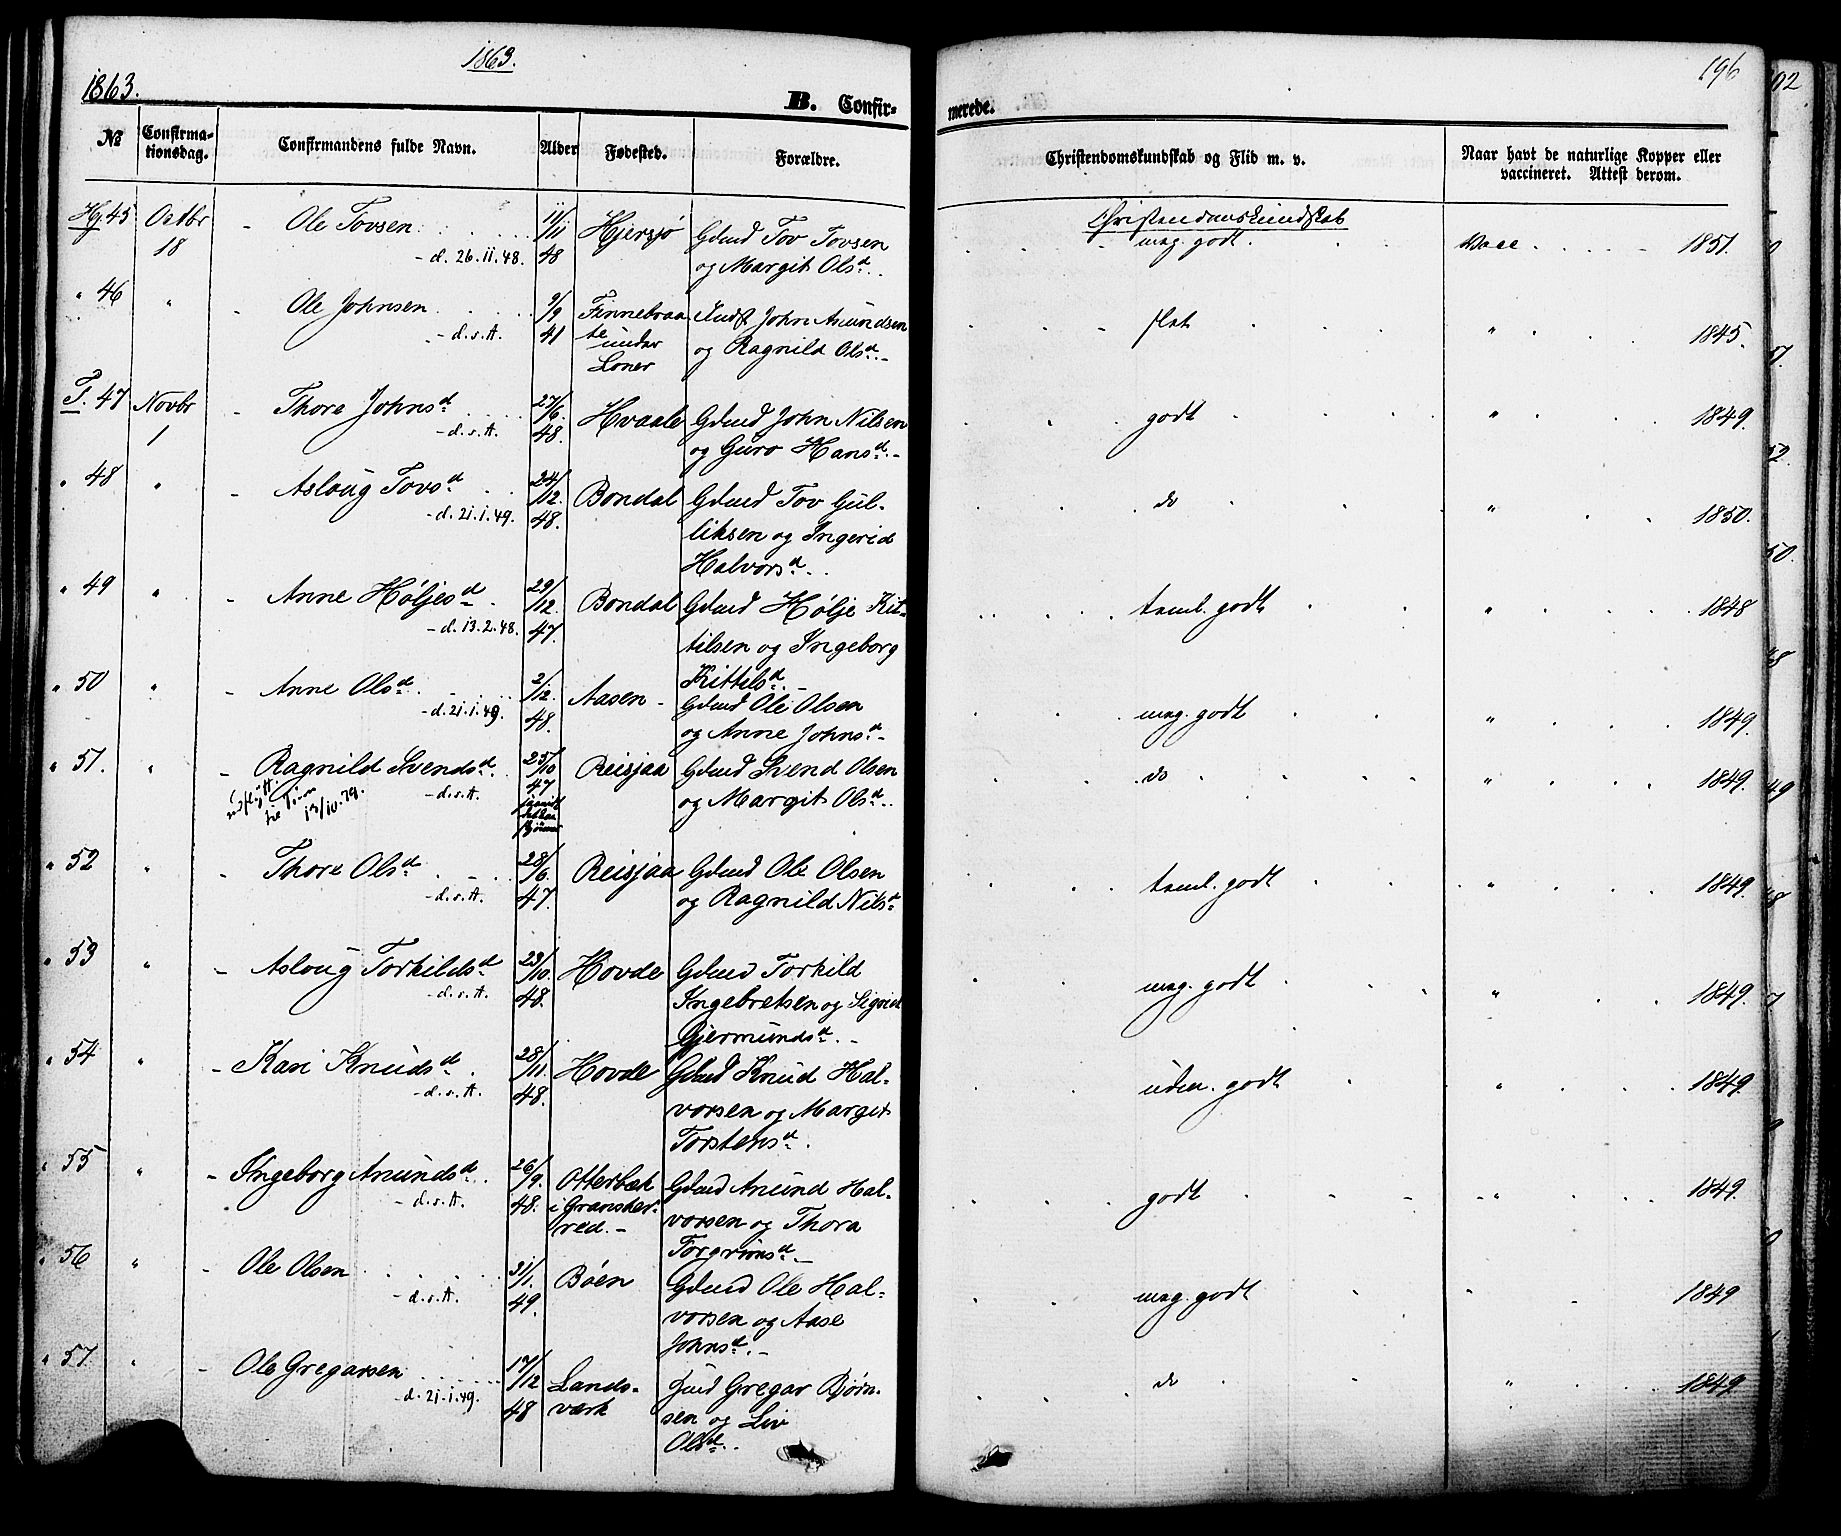 1863.
1863.
196
B. Confir-
merede.
No
Confirma-
tionsdag.
Confirmandens fulde Navn.
Alder
Fødested.
Forældre.
Christendomskundskab og Flid m. v.
Naar havt de naturlige Kopper eller
vaccineret. Attest derom.
Christendomskundskab
Hj. 45 Octbr 18 - Ole Tovsen 11/11 48 Hjersjø Gdmd Tov Tovsen meg. godt. Vacc 1851.
- d. 26.11.48. og Margit Olsd.
" 46 " - Ole Johnsen 9/9 41 Finnebraa- John Asundsen slet " 1845.
- d.s.A. te under og Ragnild Olsd. -
Loner
T. 47 Novbr 1 - Thore Johnsd 27/6 48. Hvaale Gdmd John Nilsen godt " 1849.
- d.s.A. og Guro Hansd. -
" 48 " - Asloug Tovsd 24/12 48. Bondal Gdmd Tov Gul- do " 1850.
- d. 21.1.49. liksen og Ingerid
Halvorsd.
" 49 " - Anne Høljesd 29/12 47. Bondal Gdmd Hølje Kit- taml. godt " 1848
- d. 13.2.48. tilsen og Ingeborg
Kittelsd. -
" 50 " - Anne Olsd 2/12 48. Aasen - Gdmd Ole Olsen meg. godt " 1849.
- d. 21.1.49. og Anne Johnsd -
" 51. " - Ragnild Svendsd 25/10 47 Reisjaa Gdmd Svend Olsen do " 1849.
- d.s.A. og Margit Olsd.
13/10.79.
" 52 " - Thore Olsd 28/6 47. Reisjaa Gdmd Ole Olsen taml. godt " 1849.
- d.s.A. og Ragnild Nilsd
" 53 " - Asloug Torkildsd 23/10 48. Hovde Gdmd Torkild meg. godt " 1849.
- d.s.A. Ingebretsen og Sigrid
Gjermundsd. -
" 54 " - Kari Knudsd 28/11 48. Hovde Gdmd Knud Hal- uden. godt " 1849.
- d.s.A. vorsen og Margit
Torstensd.
" 55 " - Ingeborg Anundsd 26/9 48. Otterbæk Gdmd Anund Hal- godt " 1849.
- d.s.A. i Gransher- vorsen og Thora
red. - Torgrimsd. -
" 56 " - Ole Olsen 31/1 49. Bøen Gdmd Ole Hal- meg. godt " 1849
- d.s.A. vorsen og Aase
Johnsd. -
" 57 " - Ole Gregarsen 17/12 48 Lands- Gregar Bjørn- do " 1849
- d. 21.1.49. værk sen og Liv
Olsd.